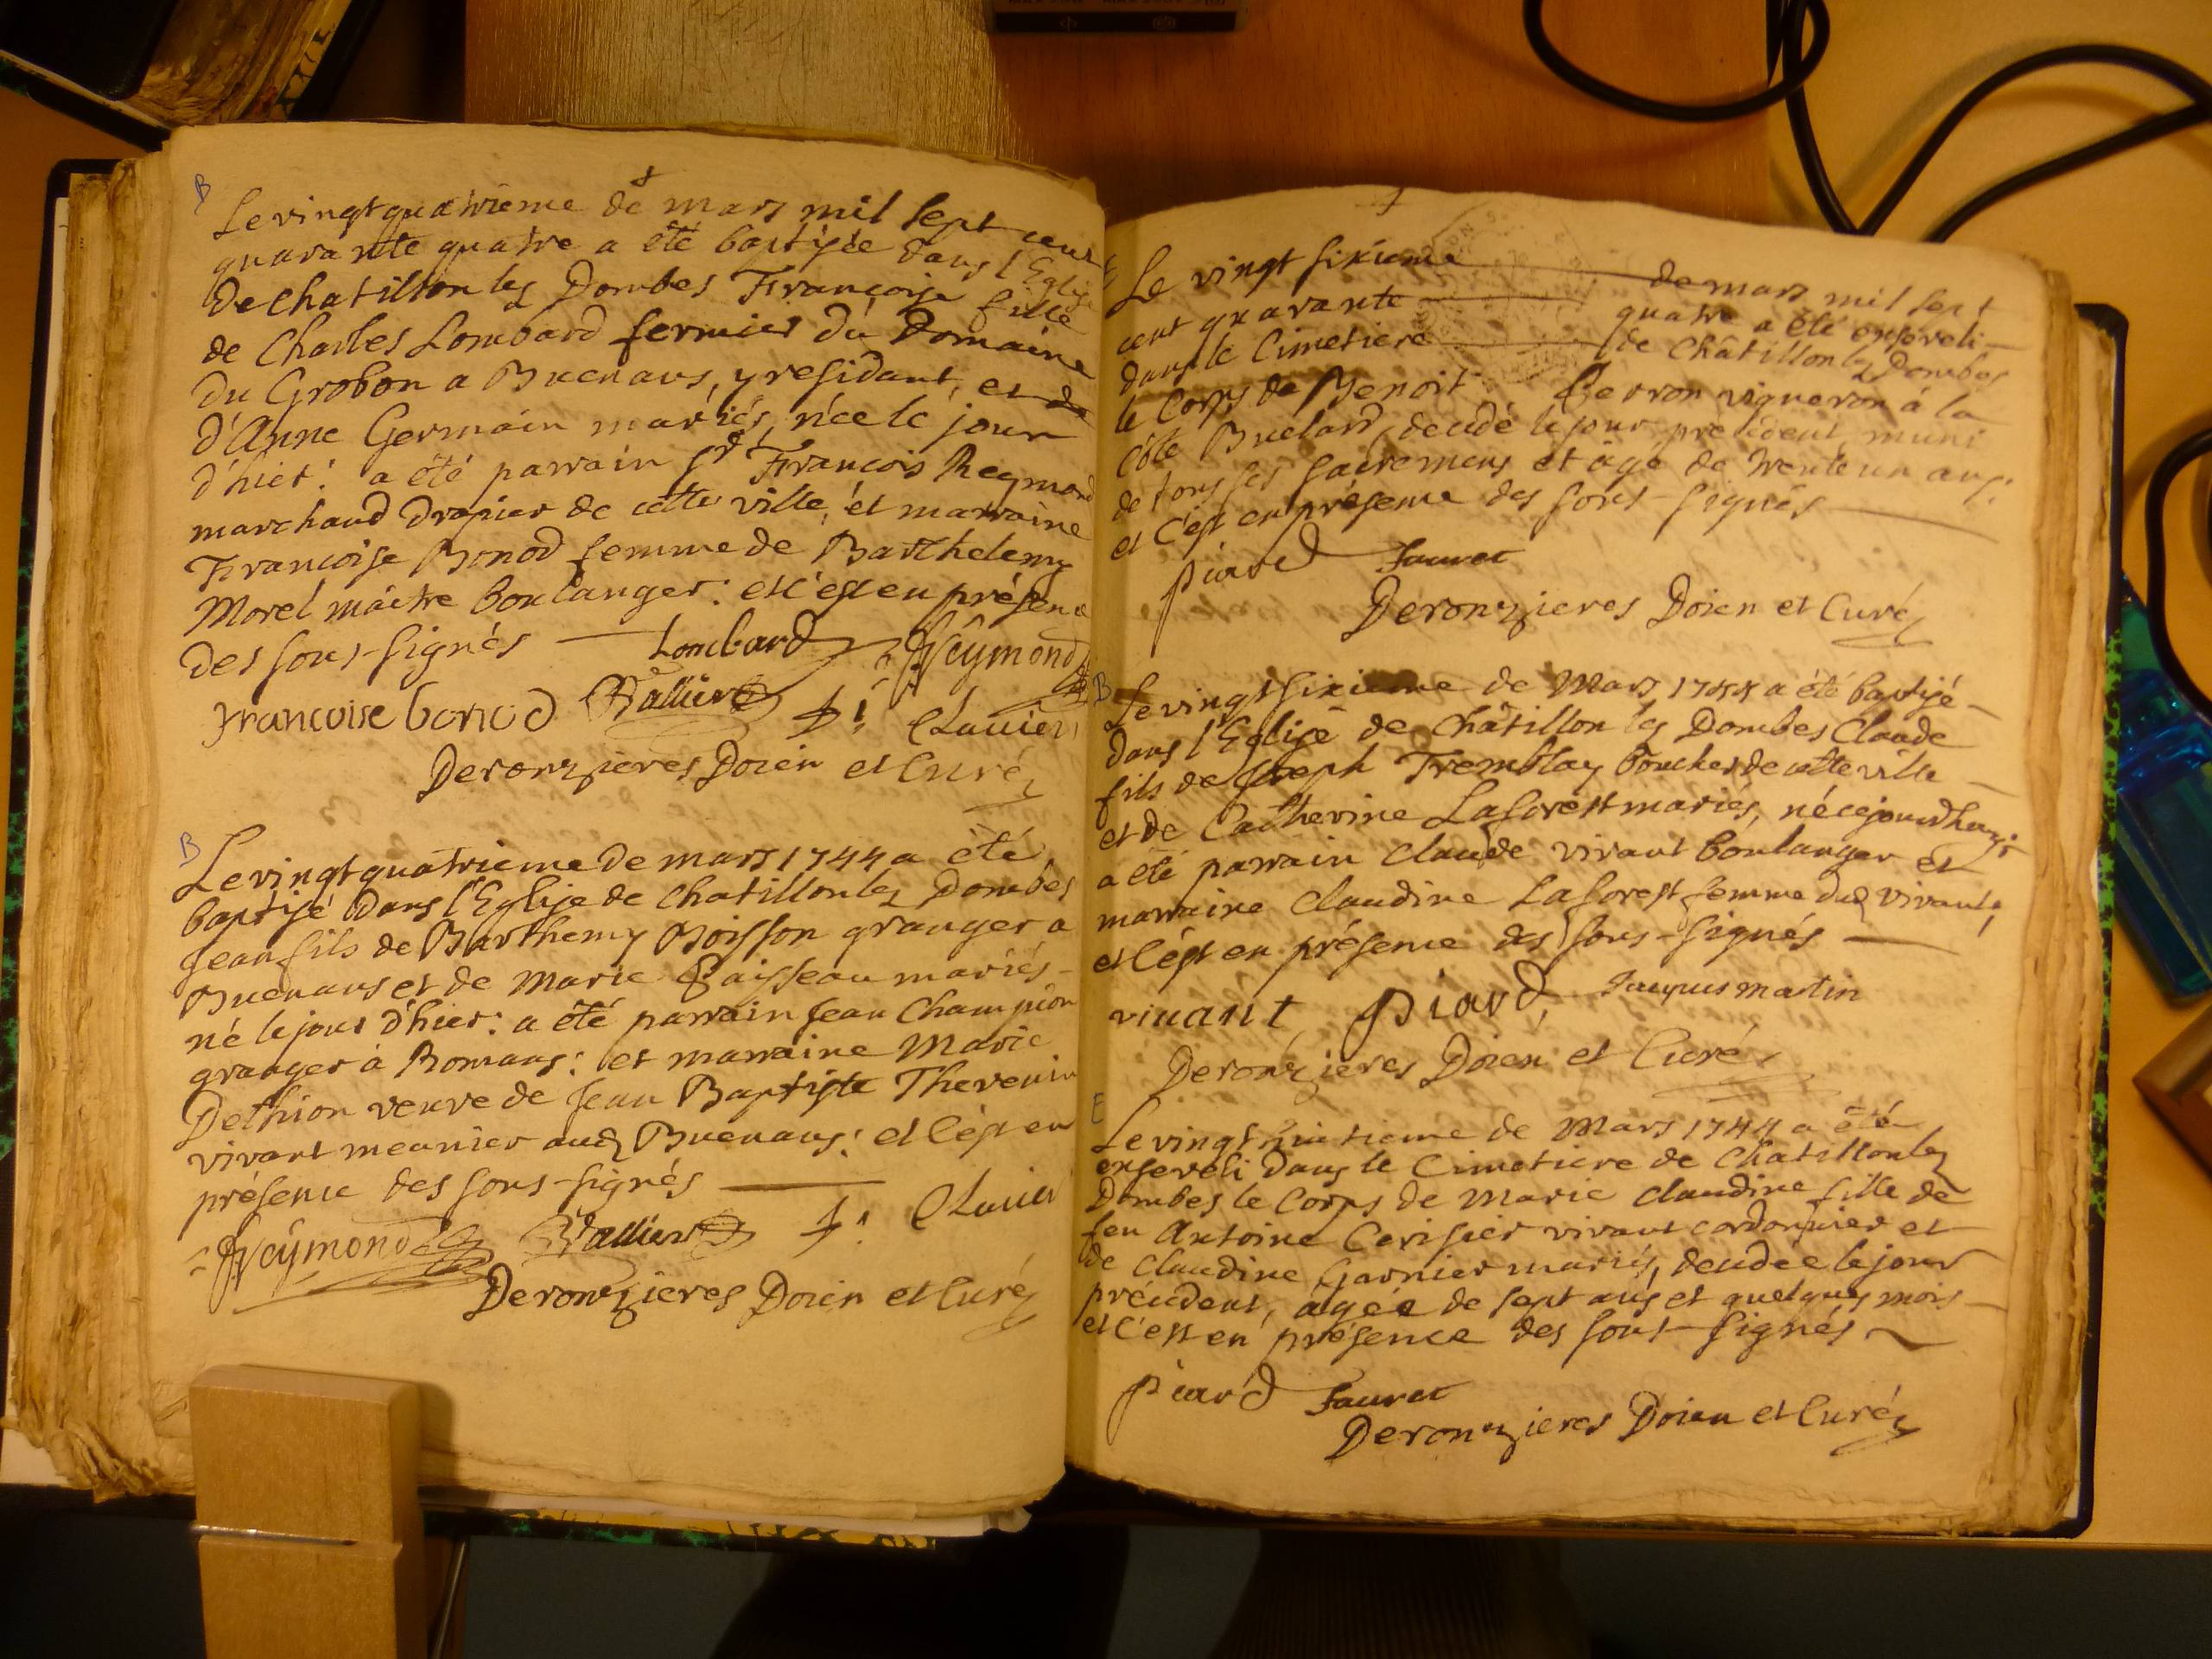 B
Le vingt quatrième de mars mil sept cent
quarante quatre a été baptisée dans l'Eglise
de chatillon lez Dombes Françoise fille
de Charles Lombard fermier du Domaine
du Grobon a Buenans, y residant, et de
d'Anne Germain mariés, née le jour
d'hier: a été parrain Sr François Reymond
marchand drapier de cette ville, et marraine
Françoise Bonod femme de Barthelemy
Morel maitre boulanger: et c'est en présence
des sous-signés Lombard Reymond
francoise bonod Vallier
Deronzieres Doien et Curé
B
Le vingt quatrieme de mars 1744 a été
baptisé dans l'Eglise de chatillon lez Dombes
Jean fils de Barthemy Boisson granger a
Buenans et de Marie mariés
né le jour d'hier: a été parrain Jean Champion
granger à Romans: et marraine Marie
Dethion veuve de Jean Baptiste Thevenin
vivant meunier aud Buenans: et c'est en
présence des sous-signés
Reymond Vallier
Deronzieres Doien et Curé
E
Le vingt sixieme de mars mil sept
cent quarante quatre a été enseveli
dans le Cimetiere de Châtillon lez Dombes
le Corps de Benoit Perron vigneron à la
côte Buelard, decedé le jour précédent, muni
de tous ses sacremens et âgé de trente un ans:
et c'est en présence des sous-signés
piard Fauret
Deronzieres Doien et Curé
B
Le vingt sixieme de Mars 1744 a été baptisé
dans l'Eglise de Châtillon lez Dombes Claude
fils de Joseph Tremblay boucher de cette ville
et de Catherine Laforest mariés, né cejourdhuy:
a été parrain claude vivant boulanger et
marraine Claudine Laforest femme dud vivant,
et c'est en présence des sous-signés
vivant piard Jacques martin
Deronzieres Doien et Curé
E
Le vingt huitieme de Mars 1744 a été
enseveli dans le Cimetiere de Chatillon lez
Dombes le Corps de Marie Claudine fille de
feu Antoine Cerisier vivant cordonnier et
de Claudine Garnier mariés, decedée le jour
précédent, agée de sept ans et quelques mois
et c'est en présence des sous-signés
piard Fauret
Deronzieres Doien et Curé